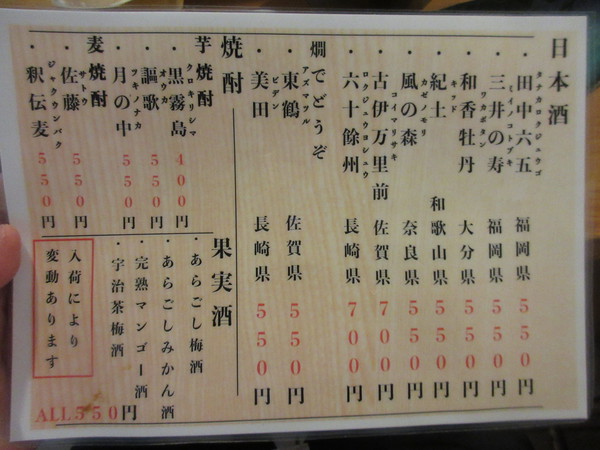 日本酒
・田中六五 タナカロクジュウゴ 福岡県 550円
・三井の寿 ミイノコトブキ 福岡県 550円
・和香牡丹 ワカボタン 大分県 550円
・紀土 キッド 和歌山県 550円
・風の森 カゼノモリ 奈良県 550円
・古伊万里前 コイマリサキ 佐賀県 700円
・六十餘州 ロクジュウヨシュウ 長崎県 700円
燗でどうぞ
・東鶴 アズマツル 佐賀県 550円
・美田 ビデン 長崎県 550円
焼酎
芋焼酎
・黒霧島 クロキリシマ 400円
・謳歌 オウカ 550円
・月の中 ツキノナカ 550円
麦焼酎
・佐藤 サトウ 550円
・釈伝麦 ジャクウンバク 550円
果実酒
・あらごし梅酒
・あらごしみかん酒
・完熟マンゴー酒
・宇治茶梅酒
ALL550円
入荷により
変動あります